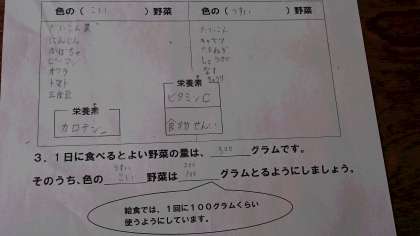 色の( こい )野菜
色の( うすい )野菜
だいこん葉
にんじん
かぼちゃ
ピーマン
オクラ
トマト
だいこん
キャベツ
たまねぎ
なす
きゅうり
栄養素
カロテン
栄養素
ビタミンC
食物せんい
3.1日に食べるとよい野菜の量は、 300 グラムです。
そのうち、色の こい 野菜は グラムとるようにしましょう。
給食では、1回に100グラムくらい
使うようにしています。